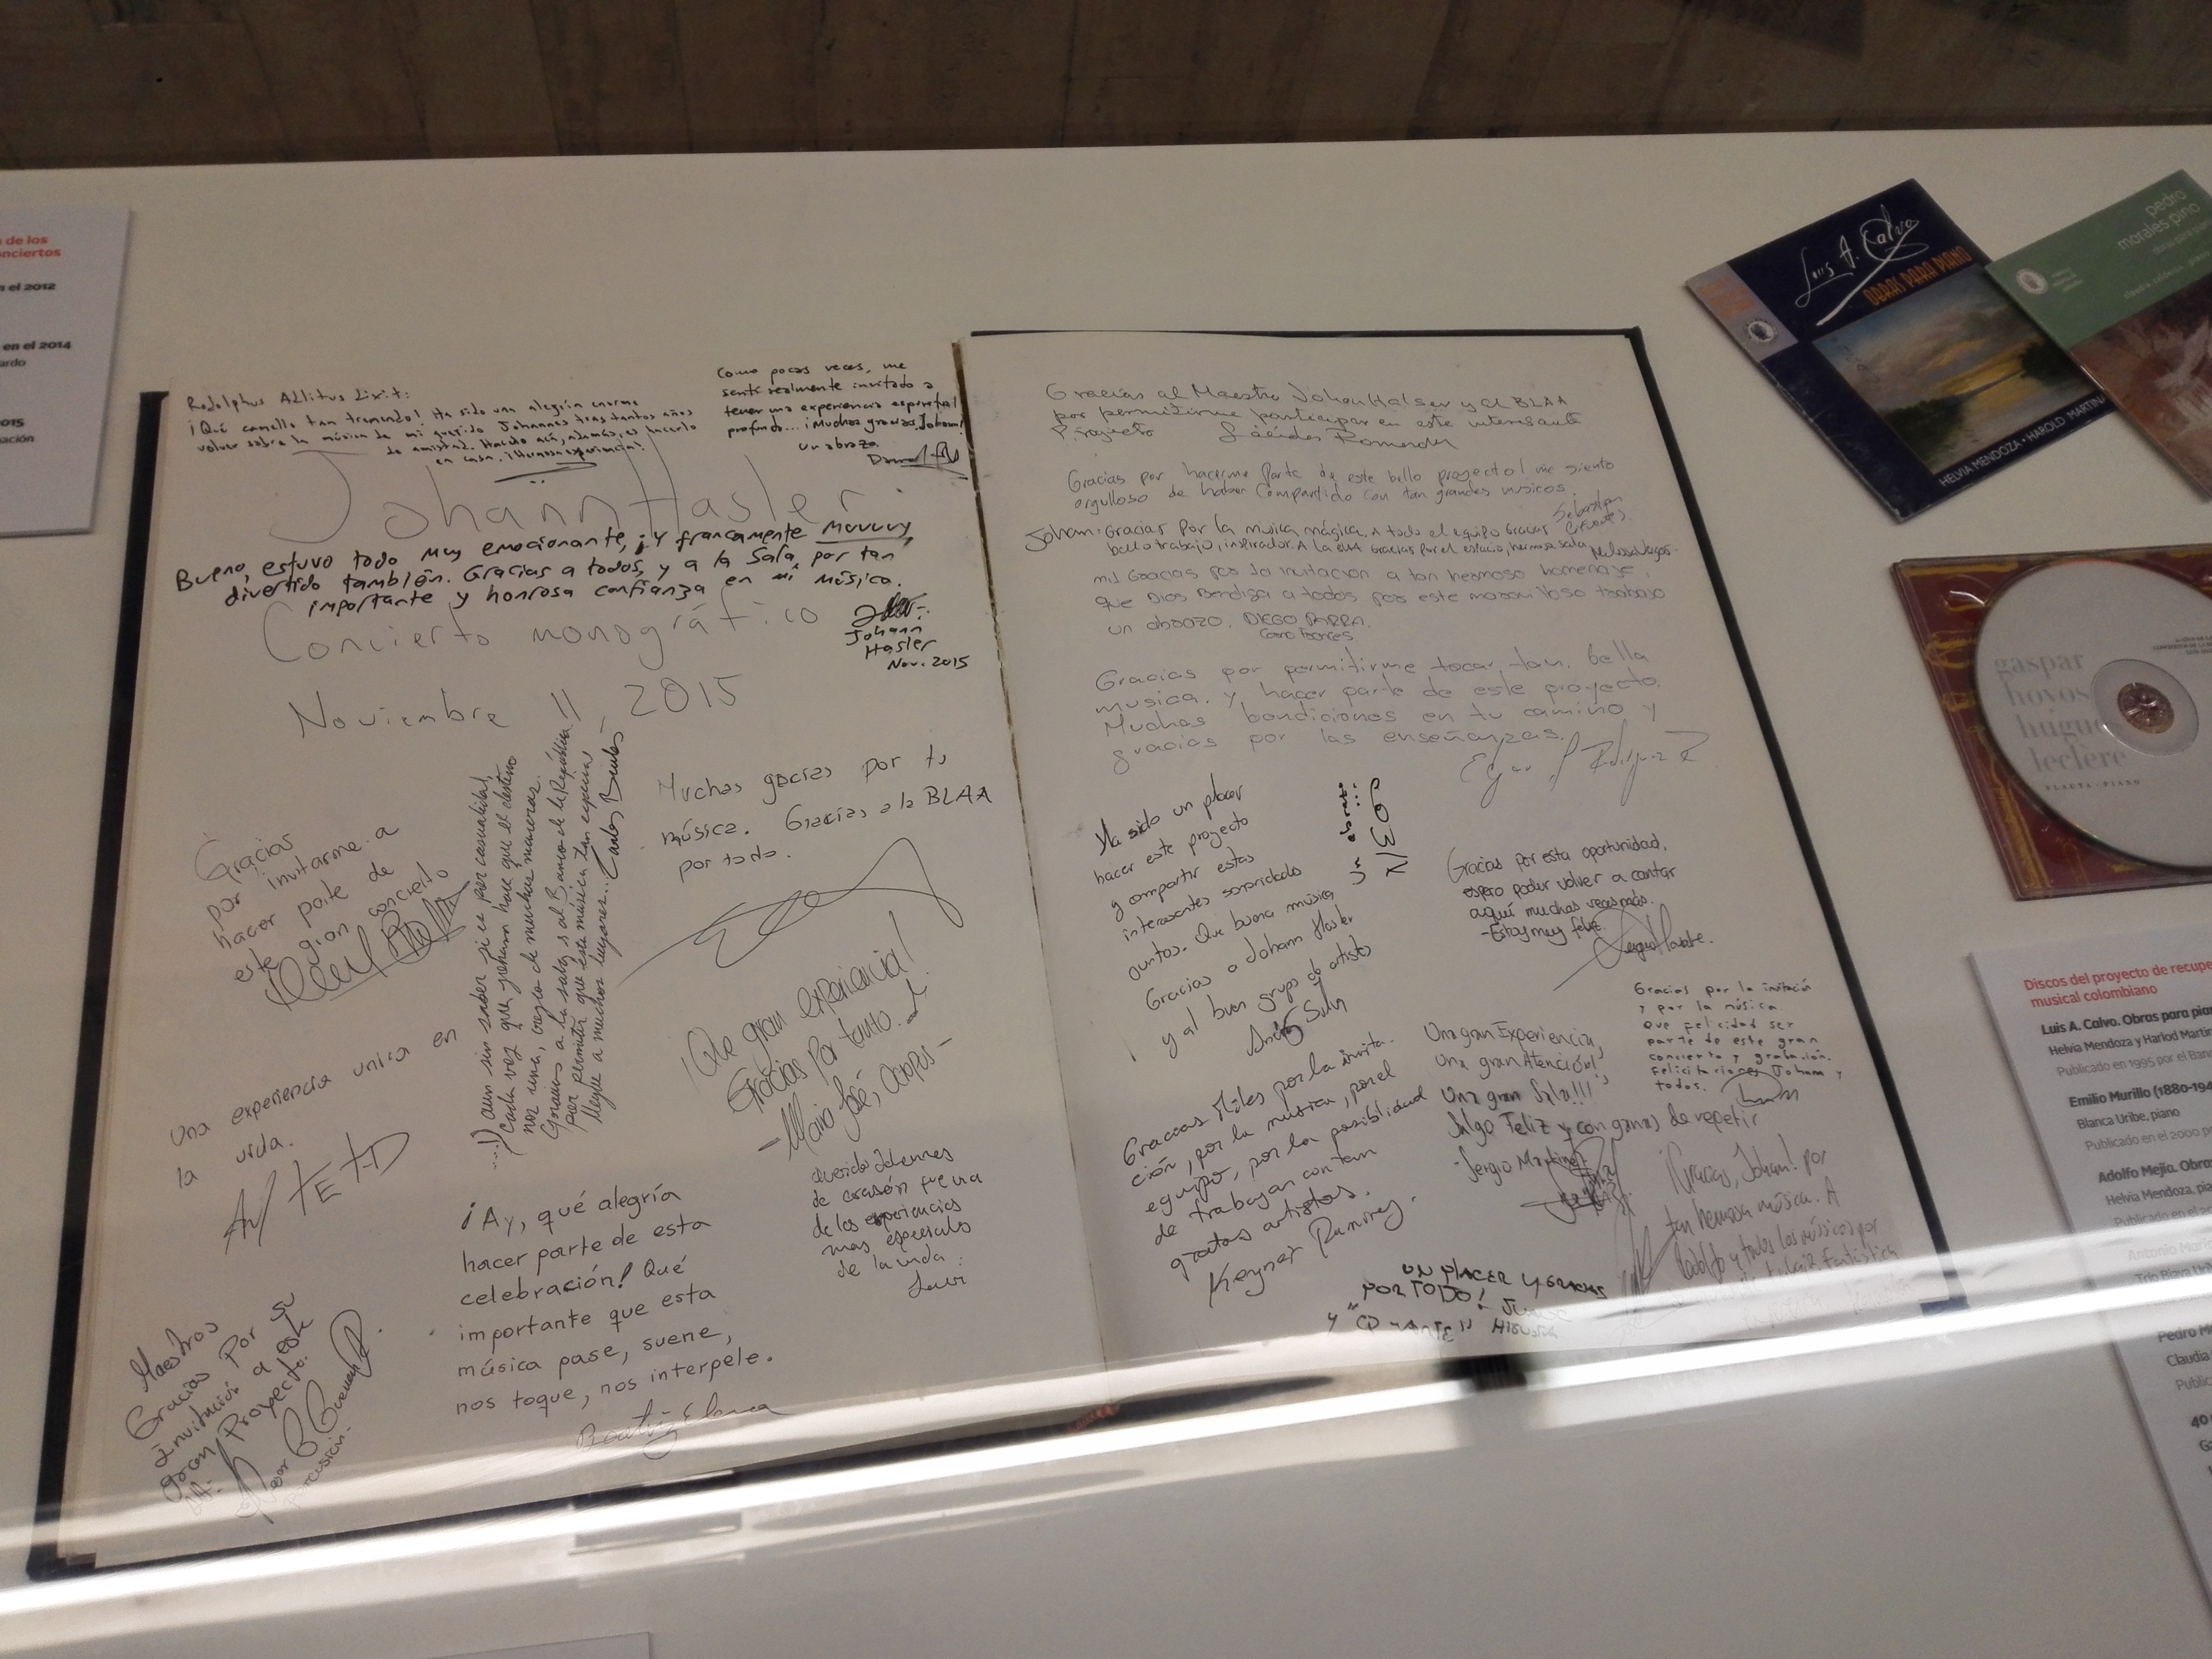 de los
onciertos
n el 2012
en el 2014
ardo
2015
ación
Rodolphus Allitus dixit:
¡Qué camello tan tremendo! Ha sido una alegría enorme
volver sobre la música de mi querido Johannes tras tantos años
de amistad. Hacerlo acá, además, es hacerlo
en casa. ¡Hermosa experiencia!
Como pocas veces, me
sentí realmente invitado a
tener una experiencia espiritual
profunda... ¡Muchas gracias, Joham!
un abrazo
Johann Hasler
Bueno, estuvo todo muy emocionante, ¡y francamente muuuy
divertido también. Gracias a todos, y a la Sala, por tan
importante y honrosa confianza en mi música.
Johann
Hasler
Nov. 2015
Concierto monográfico
Noviembre 11 2015
Gracias
por invitarme a
hacer parte de
este gran concierto
una experiencia unica en
la vida.
...:) aun sin saber si es por casualidad,
cada vez que
nos una, creo de muchas maneras.
Gracias a la sala, s al Banco de la República
por permitir que ésta música tan especial
llegue a muchos lugares...
Muchas gacias por tu
música. Gracias a la BLAA
por todo.
¡Que gran experiencia!
Gracias por tanto.
- María José, Ocampo -
Querido Johannes
de corazón fue una
de las experiencias
mas especiales
de la vida :
Maestros
Gracias Por su
Invitación a este
gran Proyecto.
Percusión.
¡Ay, qué alegría
hacer parte de esta
celebración! Qué
importante que esta
música pase, suene,
nos toque, nos interpele.
Beatriz Elena
Gracias al Maestro Johan Halser y al BLAA
por permitirme participar en este interesante
Proyecto
Gracias por hacerme parte de este bello proyecto! me siento
orgulloso de haber compartido con tan grandes musicos.
Sebastian
Cifuentes
Johan: Gracias por la música mágica. A todo el equipo Gracias
bello trabajo, inspirador. A la BLAA gracias por el espacio, hermosa sala
mil Gracias por la invitacion a tan hermoso homenaje,
que Dios Bendiga a todos por este maravilloso trabajo
un abrazo. DIEGO PARRA.
Corno Frances
Gracias por permitirme tocar tan bella
musica. y hacer parte de este proyecto.
Muchas bendiciones en tu camino y
gracias por las enseñanzas.
Ha sido un placer
hacer este proyecto
y compartir estas
interesantes sonoridades
juntos. Que buena música
Gracias a Joham Hasler
y al buen grupo de artistas
Un abrazo
Gracias por esta oportunidad,
espero poder volver a cantar
aquí muchas veces más.
- Estoy muy feliz.
Gracias por la invitación
y por la música
que felicidad ser
parte de este gran
concierto y grabación.
Felicitaciones Joham y
todos.
Gracias Miles por la invita-
ción, por la musica, por el
equipo, por la posibilidad
de trabajar con tan
gratos artistas.
Keyner Ramirez.
Una gran Experiencia,
Una gran Atención!,
Una gran Sala!!!
Salgo Feliz y con ganas de repetir
- Sergio Martinez
¡Gracias, Joham! por
tan hermosa música. A
Rodolfo y todos los músicos por
UN PLACER Y GRACIAS
POR TODO!
Luis A. Calvo
OBRAS PARA PIANO
HELVIA MENDOZA • HAROLD MARTIN
pedro
morales pino
obras para
gaspar
hoyos
hugue
leclère
FLAUTA · PIANO
Discos del proyecto de recupe
musical colombiano
Luis A. Calvo. Obras para pia
Helvia Mendoza y Harlod Martín
Publicado en 1995 por el Ban
Emilio Murillo (1880-194
Blanca Uribe, piano
Publicado en el 2000 po
Adolfo Mejía. Obras
Helvia Mendoza, pia
Publicado en el 20
Antonio María
Pedro M
Claudia
Public
40